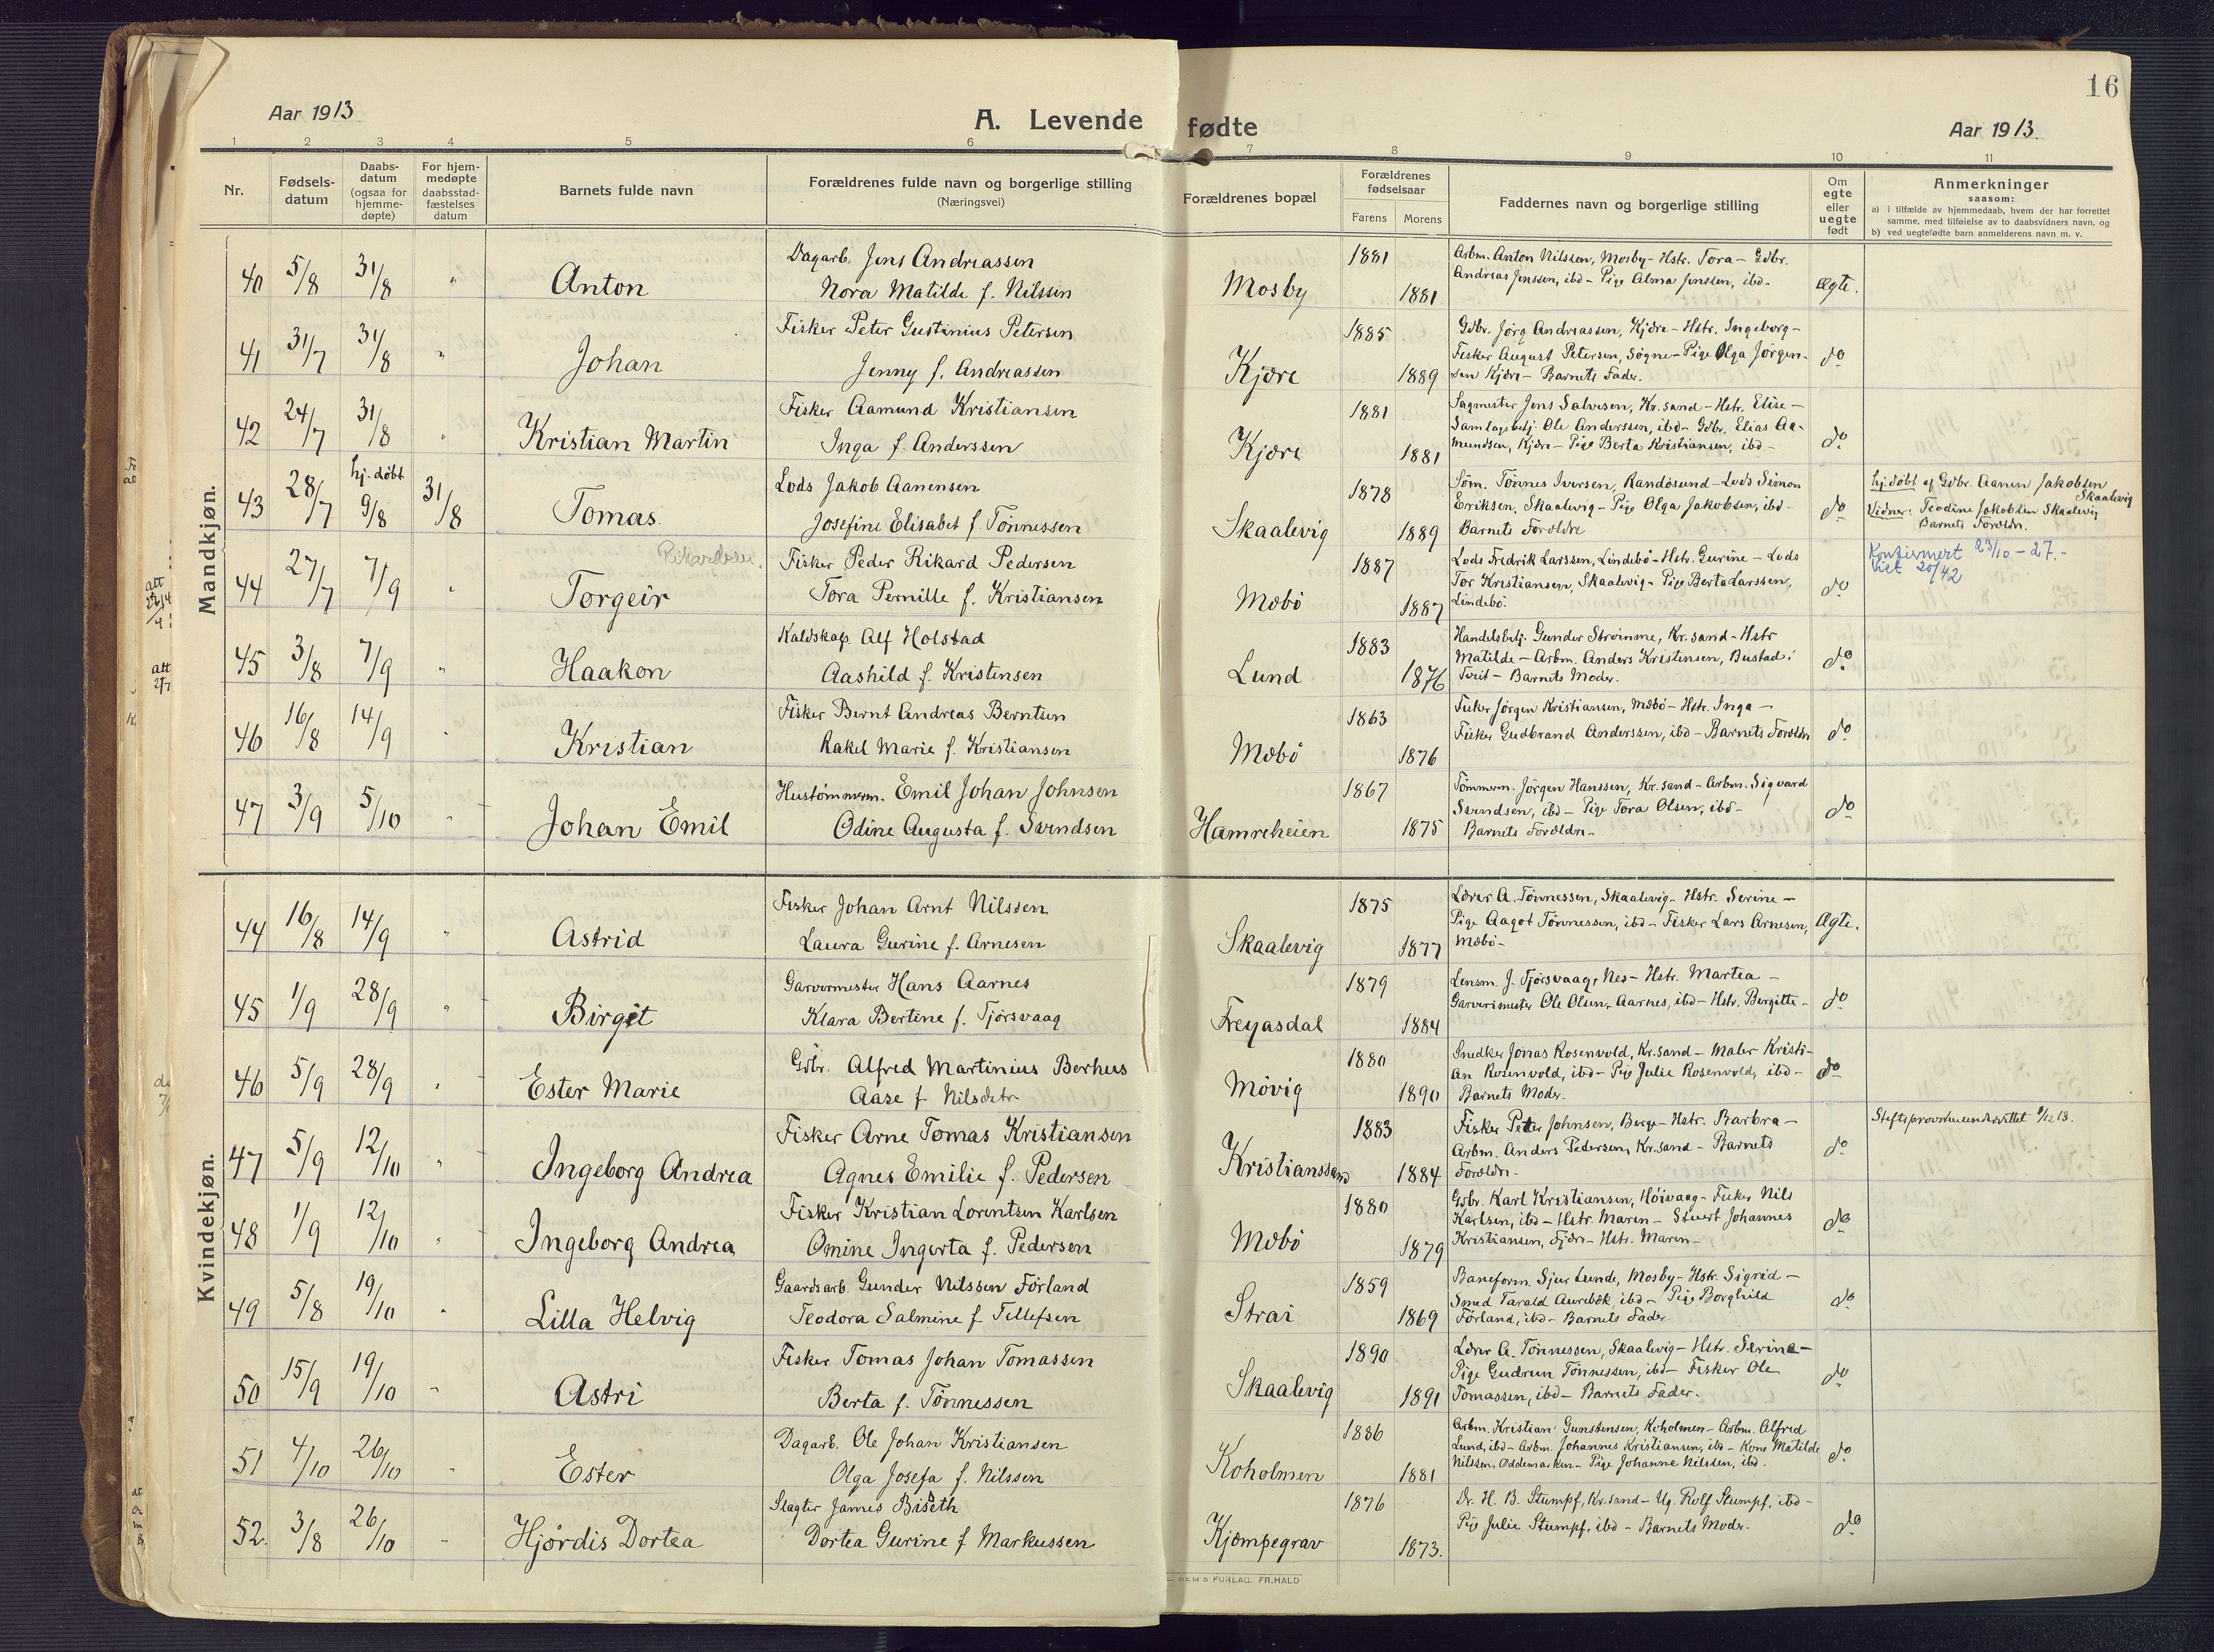 16
Aar 1913
A. Levende fødte
Aar 1913.
1 2 3 4 5 6 7 8 9 10 11
Nr.
Fødsels-
datum
Daabs-
datum
(ogsaa for
hjemme-
døpte)
For hjem-
medøpte
daabsstad-
fæstelses
datum
Barnets fulde navn
Forældrenes fulde navn og borgerlige stilling
(Næringsvei)
Forældrenes bopæl
Forældrenes
fødselsaar
Farens Morens
Faddernes navn og borgerlige stilling
Om
egte
eller
uegte
født
Anmerkninger
saasom:
a) i tilfælde av hjemmedaab, hvem der har forrettet
samme, med tilføielse av to daabsvidners navn, og
b) ved uegtefødte barn anmelderens navn m. v.
Mandkjøn.
40 5/8 31/8 " Anton
Dagarb. Jens Andreassen
Nora Matilde f. Nilssen
Mosby 1881 1881
Arbm. Anton Nilssen, Mosby - Hstr. Tora - Gdbr.
Andreas Jenssen, ibd - Pige Alma Jenssen, ibd -
Ægte.
41 31/7 31/8 " Johan
Fisker Peter Gustinius Petersen
Jenny f. Andreassen
Kjære 1885 1889
Gdbr. Jörg Andreassen, Kjære - Hstr. Ingeborg -
Fisker August Petersen, Søgne - Pige Olga Jörgen-
sen Kjære - Barnets Fader.
do
42 24/7 31/8 " Kristian Martin
Fisker Aamund Kristiansen
Inga f. Anderssen
Kjære 1881 1881
Sagmester Jens Salvesen, Kr.sand - Hstr. Elise -
Samlagsbetj. Ole Anderssen, ibd - Gdbr. Elias Aa-
mundsen, Kjære - Pige Berta Kristiansen, ibd -
do
43 28/7 hj. döbt 9/8 31/8 Tomas.
Lods Jakob Aanensen
Josefine Elisabet f. Tönnessen
Skaalevig 1878 1889
Söm. Tönnes Iversen, Randösund - Lods Simon
Eriksen, Skaalevig - Pige Olga Jakobsen, ibd -
Barnets Forældre
do
hj. döbt af Gdbr. Aanen Jakobsen
Skaalevig
Vidner: Teodine Jakobsen Skaalevig
Barnets Forældr.
44 27/7 7/9 " Torgeir
Rikardsen.
Fisker Peder Rikard Pedersen
Tora Pernille f. Kristiansen
Mæbö 1887 1887
Lods Fredrik Larssen, Lindebö - Hstr. Gurine - Lods
Tor Kristiansen, Skaalevig - Pige Berta Larssen,
Lindebö.
do
Konfirmert 23/10 - 27. -
Viet 20/42
45 3/8 7/9 " Haakon
Kaldskap. Alf Holstad
Aashild f. Kristensen
Lund 1883 1876
Handelsbetj. Gunder Strömme, Kr.sand - Hstr
Matilde - Arbm. Anders Kristensen, Bustad i
Tveit - Barnets Moder.
do
46 16/8 14/9 " Kristian
Fisker Bernt Andreas Berntsen
Rakel Marie f. Kristiansen
Mæbö 1863 1876
Fisker Jörgen Kristiansen, Mæbö - Hstr. Inga -
Fisker Gudbrand Anderssen, ibd - Barnets Forældre
do
47 3/9 5/10 " Johan Emil
Hustömmerm. Emil Johan Johnsen
Odine Augusta f. Svendsen
Hamreheien 1867 1875
Tömmerm. Jörgen Hanssen, Kr.sand - Arbm. Sigvard
Svendsen, ibd - Pige Tora Olsen, ibd -
Barnets Forældre -
do
Kvindekjøn.
44 16/8 14/9 " Astrid
Fisker Johan Arnt Nilssen
Laura Gurine f. Arnesen
Skaalevig 1875 1877
Lærer A. Tönnessen, Skaalevig - Hstr. Serine -
Pige Aagot Tönnessen, ibd - Fisker Lars Arnesen,
Mæbö -
Ægte.
45 1/9 28/9 " Birgit
Garvermester Hans Aarnes
Klara Bertine f. Tjörsvaag
Freyasdal 1879 1884
Lensm. J. Tjörsvaag, Nes - Hstr. Martea -
Garverimester Ole Olsen, Aarnes, ibd - Hstr. Bergitte -
do
46 5/9 28/9 " Ester Marie
Gdbr. Alfred Martinius Berhus
Aase f Nilsdatr
Mövig 1880 1890
Snedker Jonas Rosenvold, Kr.sand - Maler Kristi-
an Rosenvold, ibd - Pige Julie Rosenvold, ibd -
Barnets Moder.
do
47 5/9 12/10 " Ingeborg Andrea
Fisker Arne Tomas Kristiansen
Agnes Emilie f. Pedersen
Kristianssand 1883 1884
Fisker Peter Johnsen, Berge - Hstr. Barbra -
Arbm. Anders Pedersen, Kr.sand - Barnets
Forældre -
do
48 1/9 12/10 " Ingeborg Andrea
Fisker Kristian Lorentsen Karlsen
Omine Ingerta f. Pedersen
Mæbö 1880 1879
Gdbr. Karl Kristiansen, Höivaag - Fisker Nils
Karlsen, ibd - Hstr. Maren - Stuert Johannes
Kristiansen, - Hstr. Maren -
do
49 5/8 19/10 " Lilla Helvig
Gaardsarb. Gunder Nilssen Förland
Teodora Salmine f Tellefsen
Strai 1859 1869
Baneform. Sjur Lunde, Mosby - Hstr. Sigrid -
Smed Tarald Aurebæk, ibd - Pige Borghild
Förland, ibd - Barnets Fader
do
50 15/9 19/10 " Astri
Fisker Tomas Johan Tomassen
Berta f. Tönnessen
Skaalevig 1890 1891
Lærer A. Tönnessen, Skaalevig - Hstr. Serine -
Pige Gudrun Tönnessen, ibd - Fisker Ole
Tomassen, ibd - Barnets Fader.
do
51 4/10 26/10 " Ester
Dagarb. Ole Johan Kristiansen
Olga Josefa f. Nilssen
Koholmen 1886 1881
Arbm. Kristian Gunstensen, Koholmen - Arbm. Alfred
Lund, ibd - Arbm. Johannes Kristiansen, ibd - Kone Matilde
Nilssen, Oddemarken - Pige Johanne Nilssen, ibd.
do
52. 3/8 26/10 " Hjördis Dortea
Slagter James Biseth
Dortea Gurine f Markussen
Kjæmpegrav 1876 1873.
Dr. H. B. Stumpf, Kr.sand - Ug. Rolf Stumpf, ibd -
Pige Julie Stumpf, ibd - Barnets Moder.
do
FORLAG. FR.HALD